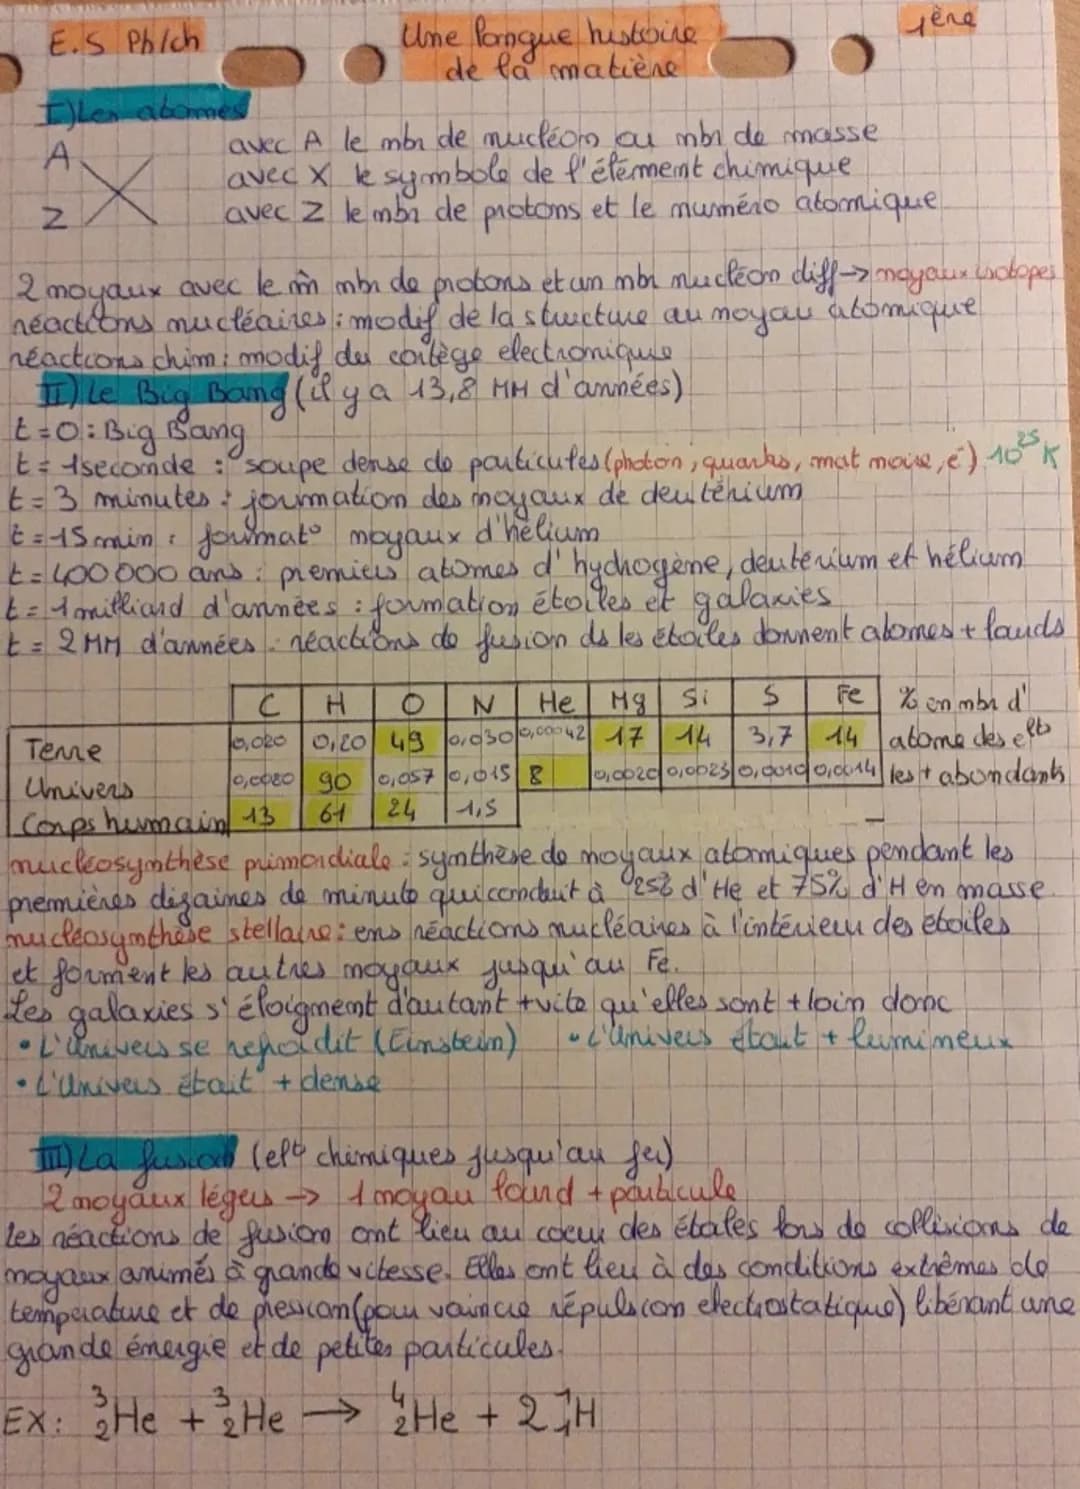 E.S Ph/ch
Une longue histoire
de la matière
1ère
I) Les atomes
A
Z X
avec A le nbr de nucléon ou nbr de masse
avec X le symbole de l'élément chimique
avec Z le nbr de protons et le numéro atomique
2 noyaux avec le m̂ nbr de protons et un nbr nucléon diff → noyaux isotopes
réactions nucléaires : modif de la structure du noyau atomique
réactions chim : modif du cortège electronique
II) Le Big Bang (il y a 13,8 MM d'années)
t = 0 : Big Bang
t = 1 seconde : soupe dense de particules (photon, quarks, mat noire, é) 10²⁵ K
t = 3 minutes : formation des noyaux de deutérium
t = 15 min : format° noyaux d'hélium
t = 400 000 ans : premiers atomes d'hydrogène, deutérium et hélium
t = 1 milliard d'années : formation étoiles et galaxies
t = 2 MM d'années : réactions de fusion ds les étoiles donnent atomes + lourds
C H O N He Mg Si S Fe % en nbr d'
Terre 0,020 0,20 49 0,030 0,00042 17 14 3,7 14 atome des elts
Univers 0,0080 90 0,057 0,015 8 0,0020 0,0023 0,0010 0,0014 les + abondants
Corps humain 13 61 24 1,5
nucléosynthèse primordiale : synthèse de noyaux atomiques pendant les
premières dizaines de minute qui conduit à 25% d'He et 75% d'H en masse
nucléosynthèse stellaire : ens réactions nucléaires à l'intérieur des étoiles
et forment les autres noyaux jusqu'au Fe.
Les galaxies s'éloignent d'autant + vite qu'elles sont + loin donc
• L'Univers se refroidit (Einstein) • L'Univers était + lumineux
• L'Univers était + dense
III) La fusion (elt chimiques jusqu'au fer)
2 noyaux légers → 1 noyau lourd + particule
Les réactions de fusion ont lieu au coeur des étoiles lors de collisions de
noyaux animés à grande vitesse. Elles ont lieu à des conditions extrêmes de
température et de pression (pour vaincre répulsion electrostatique) libérant une
grande énergie et de petites particules.
EX : ³₂He + ³₂He → ⁴₂He + 2 ¹₁H